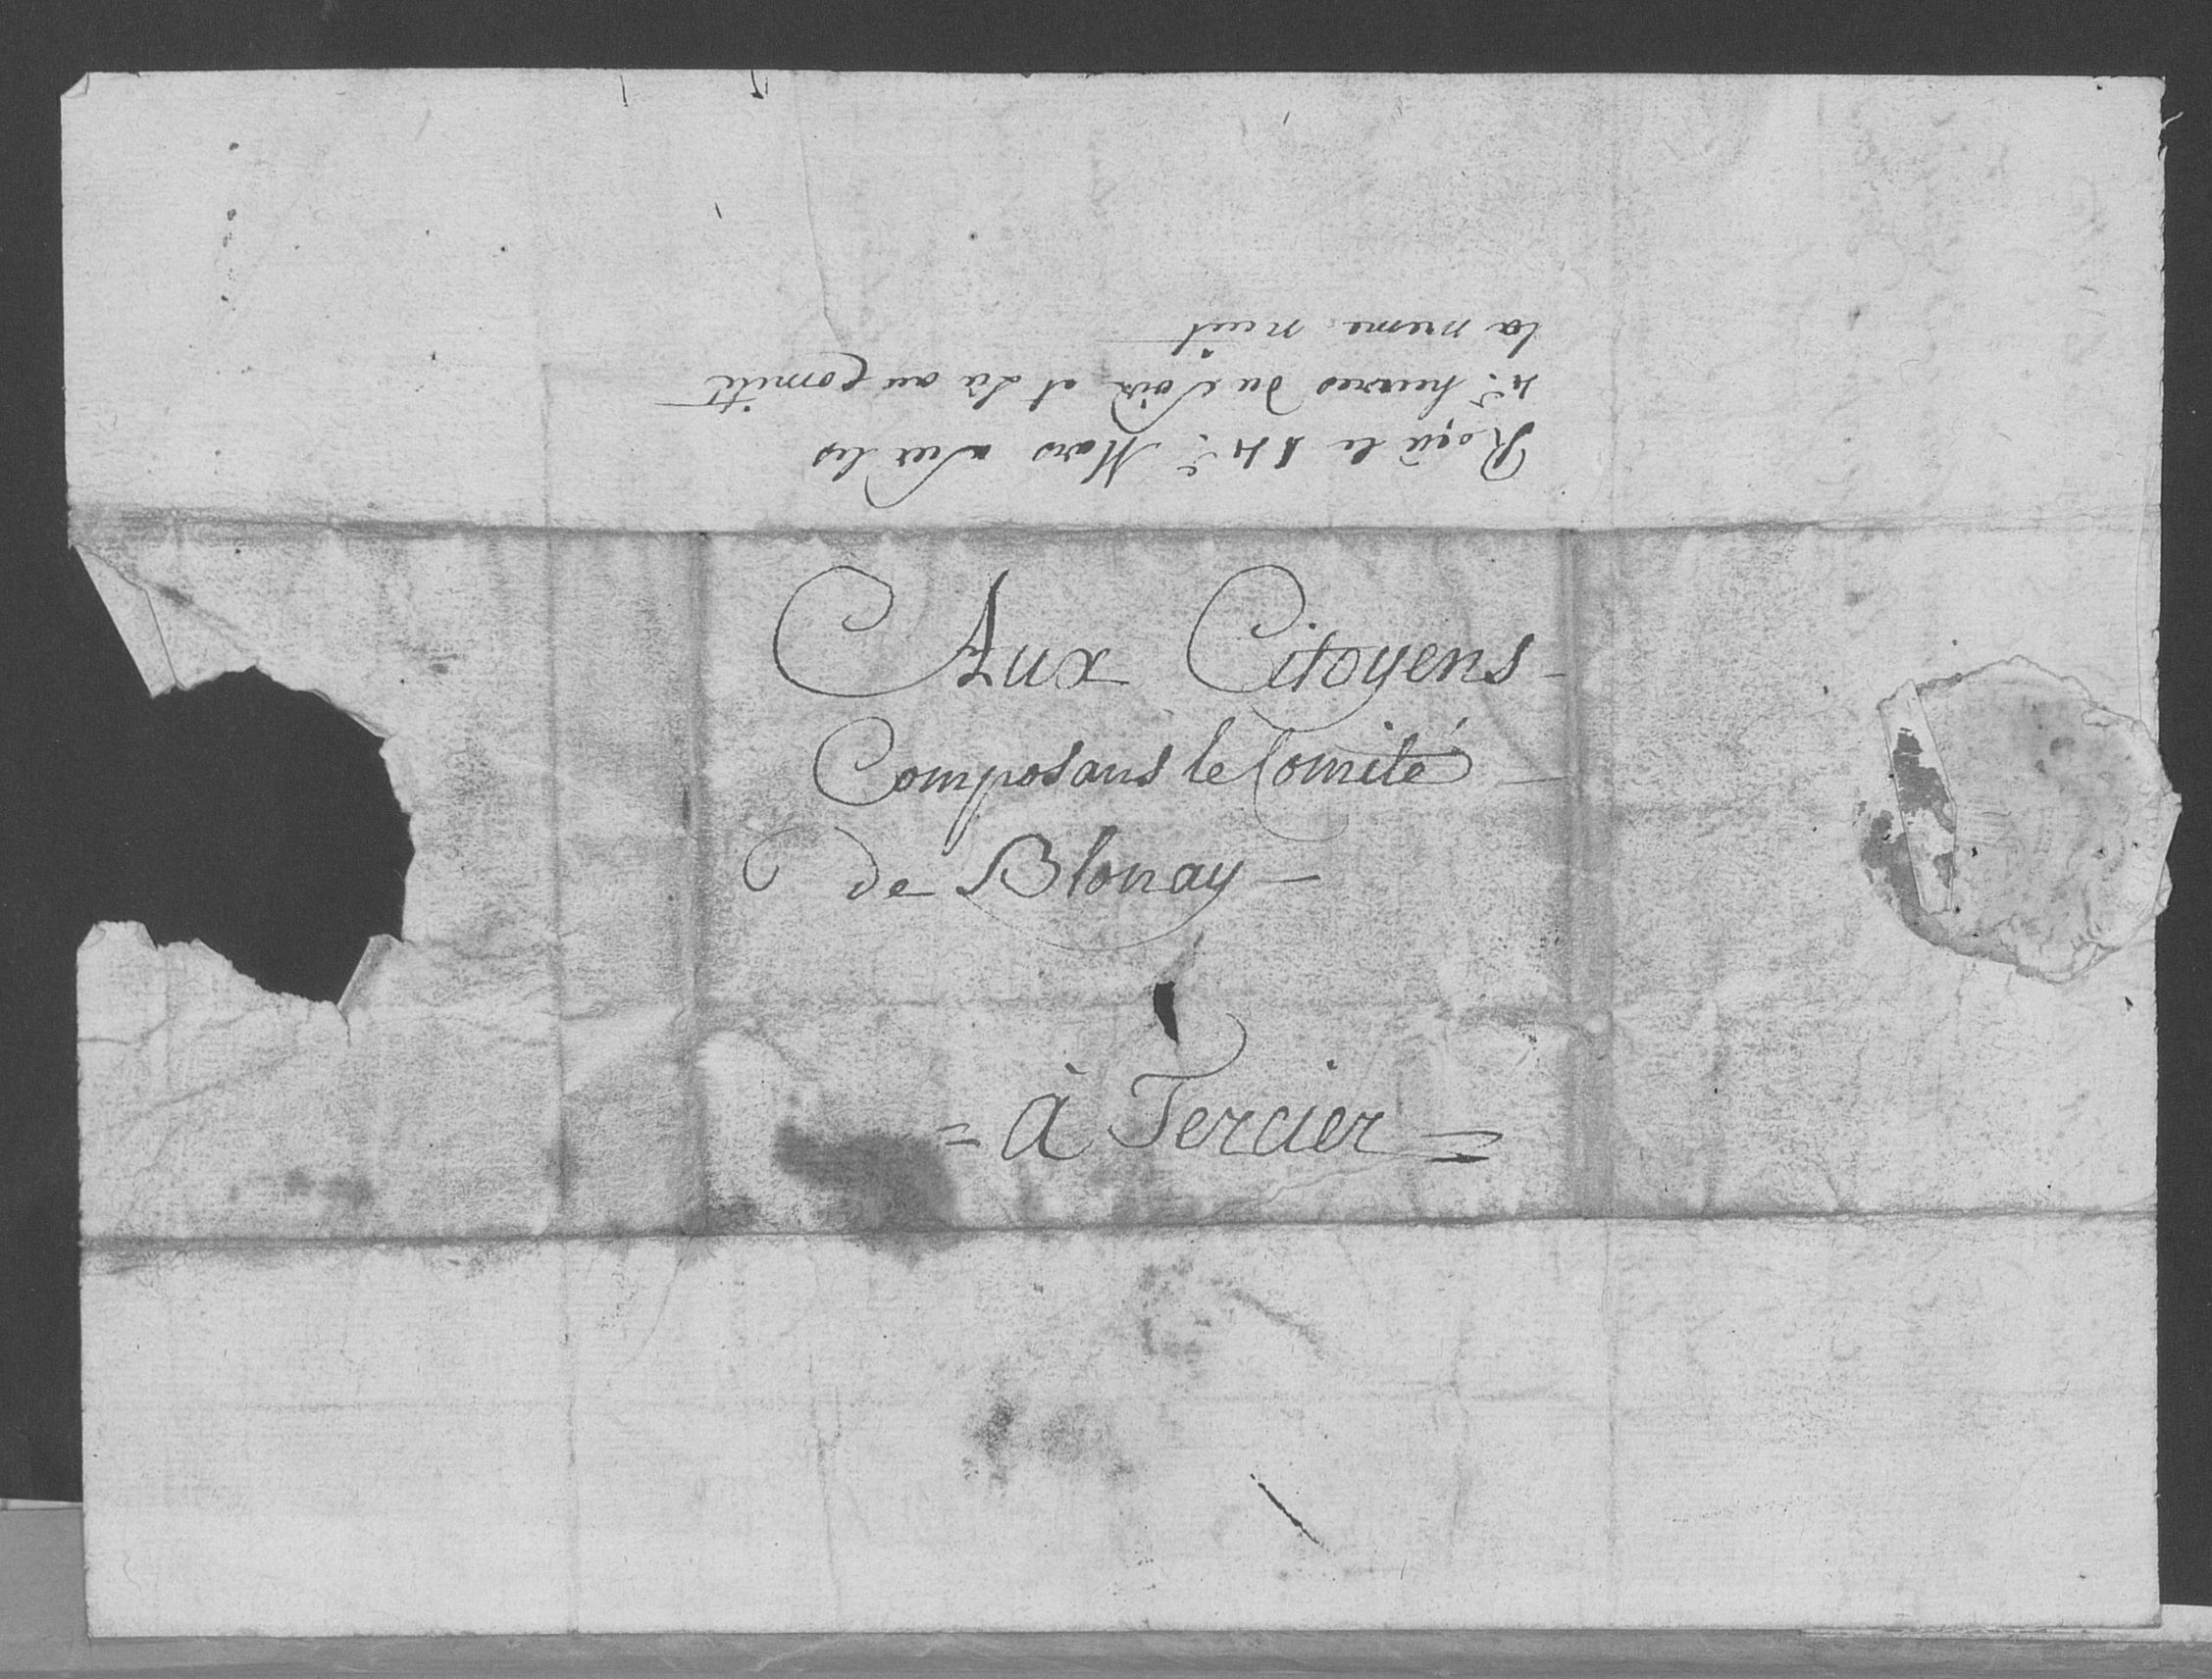 Aux Citoyens
Composans le Comité
de Blonay
= à Tercier =
Reçu le 14e Mars sur les
4e heures du soir et lu au Comité
la meme nuit